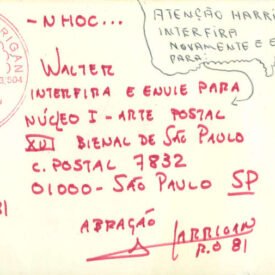 -NHOC...
ATENÇÃO HARRI
INTERFIRA
NOVAMENTE E E
PARA:
RRIGAN
3,504
WALTER
INTERFIRA E ENVIE PARA
NÚCLEO I - ARTE POSTAL
XVI BIENAL DE SÃO PAULO
C. POSTAL 7832
01000 - SÃO PAULO SP
81
ABRAÇÃO
HARRIGAN
R.O 81